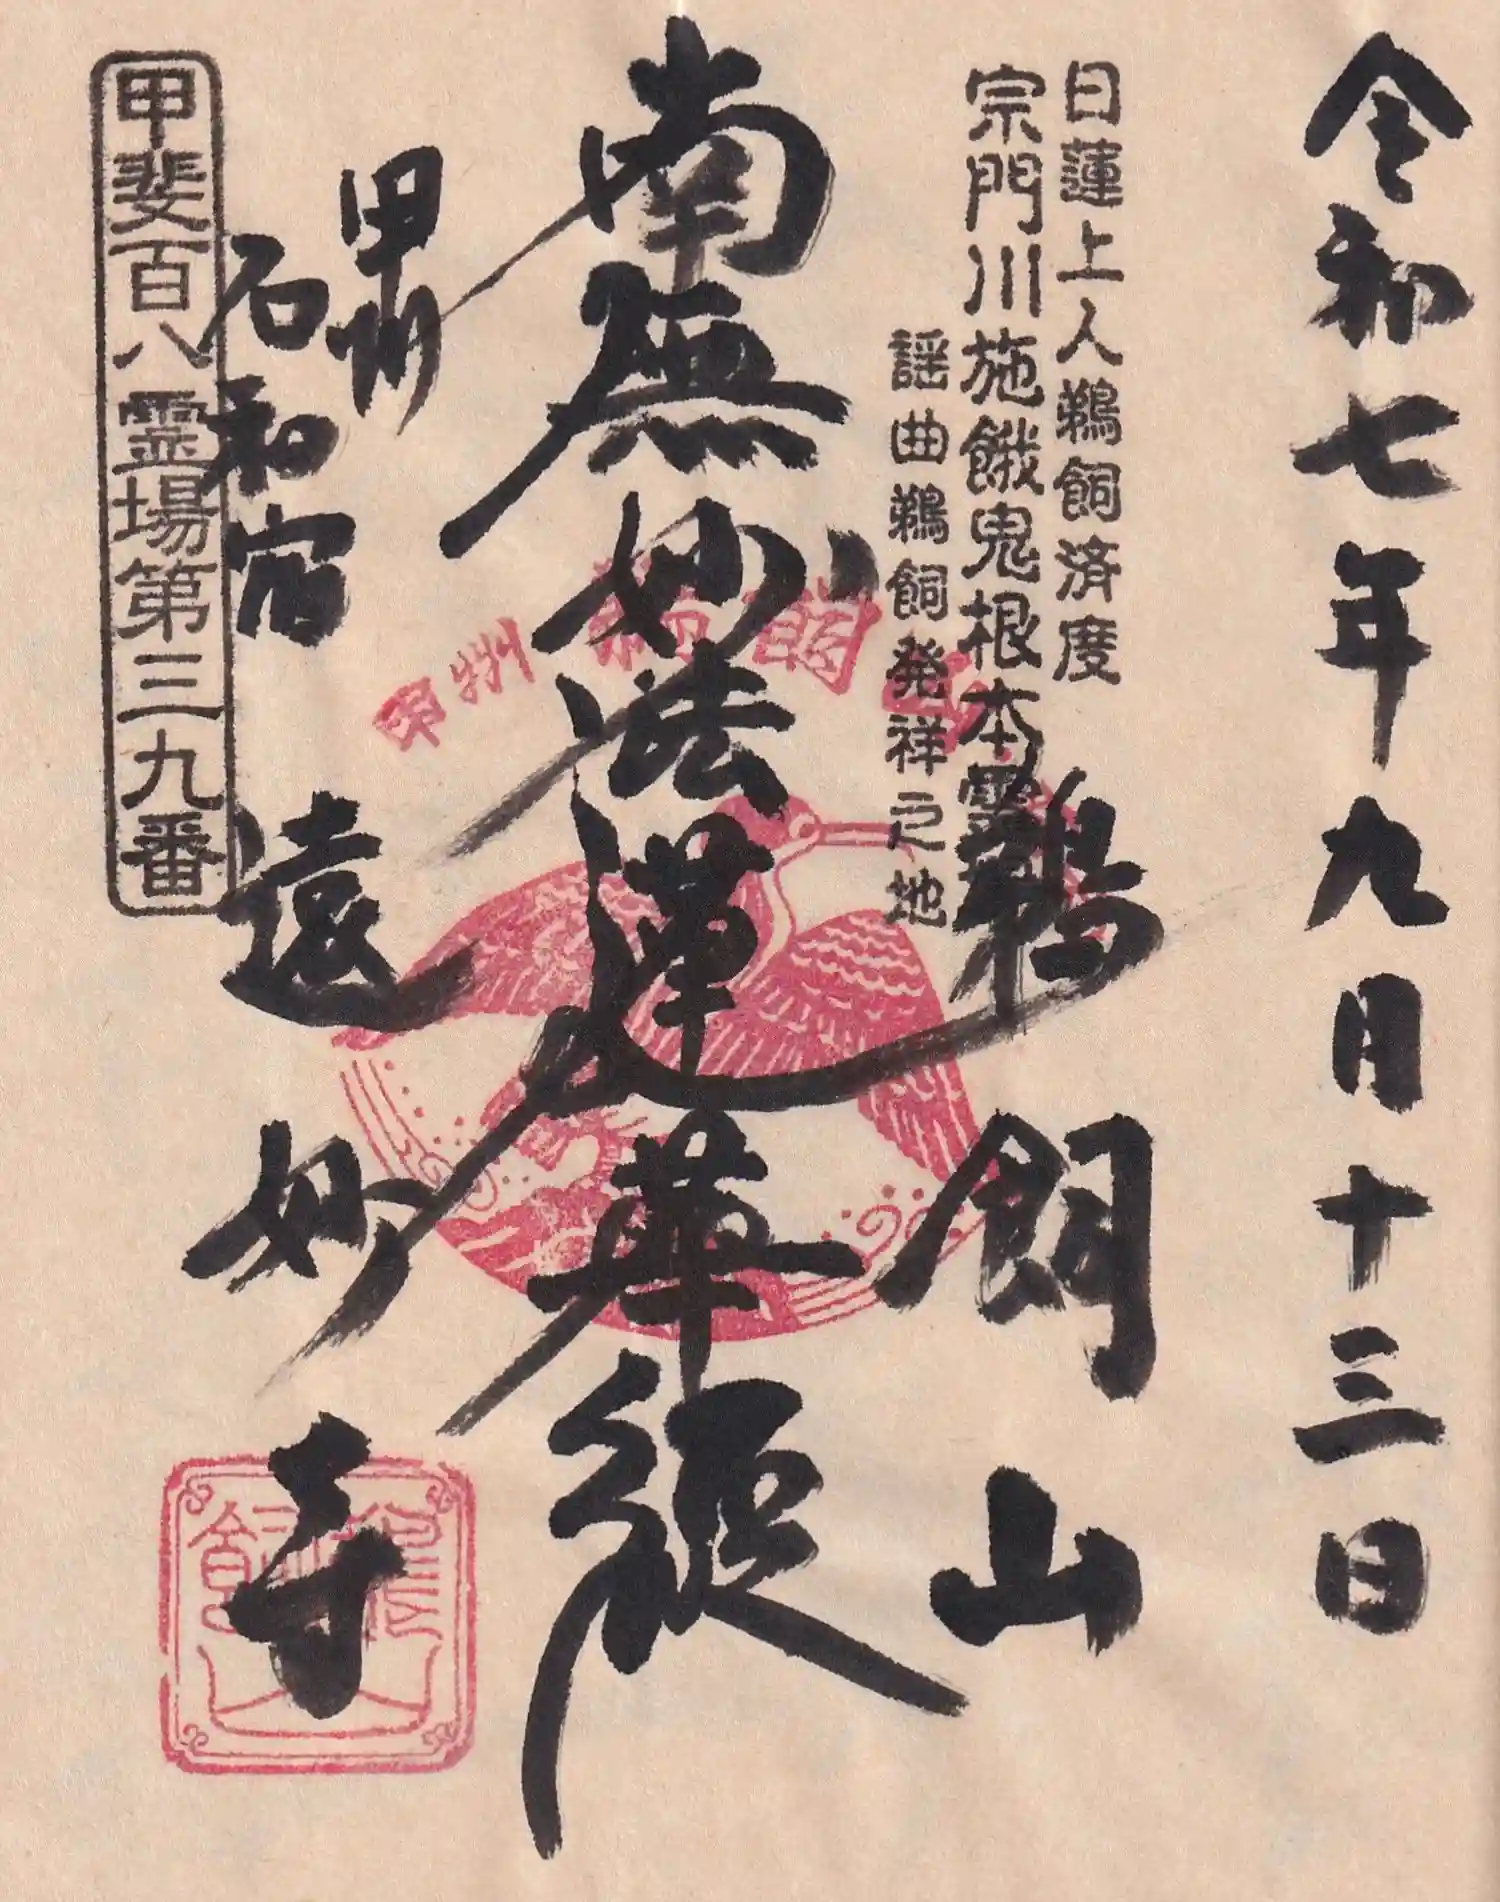 令和七年九月十三日
日蓮上人鵜飼済度
宗門川施餓鬼根本霊場
謡曲鵜飼発祥之地
鵜飼山
南無妙法蓮華経
甲州
甲州
石和宿
遠妙寺
甲斐百八霊場第三九番